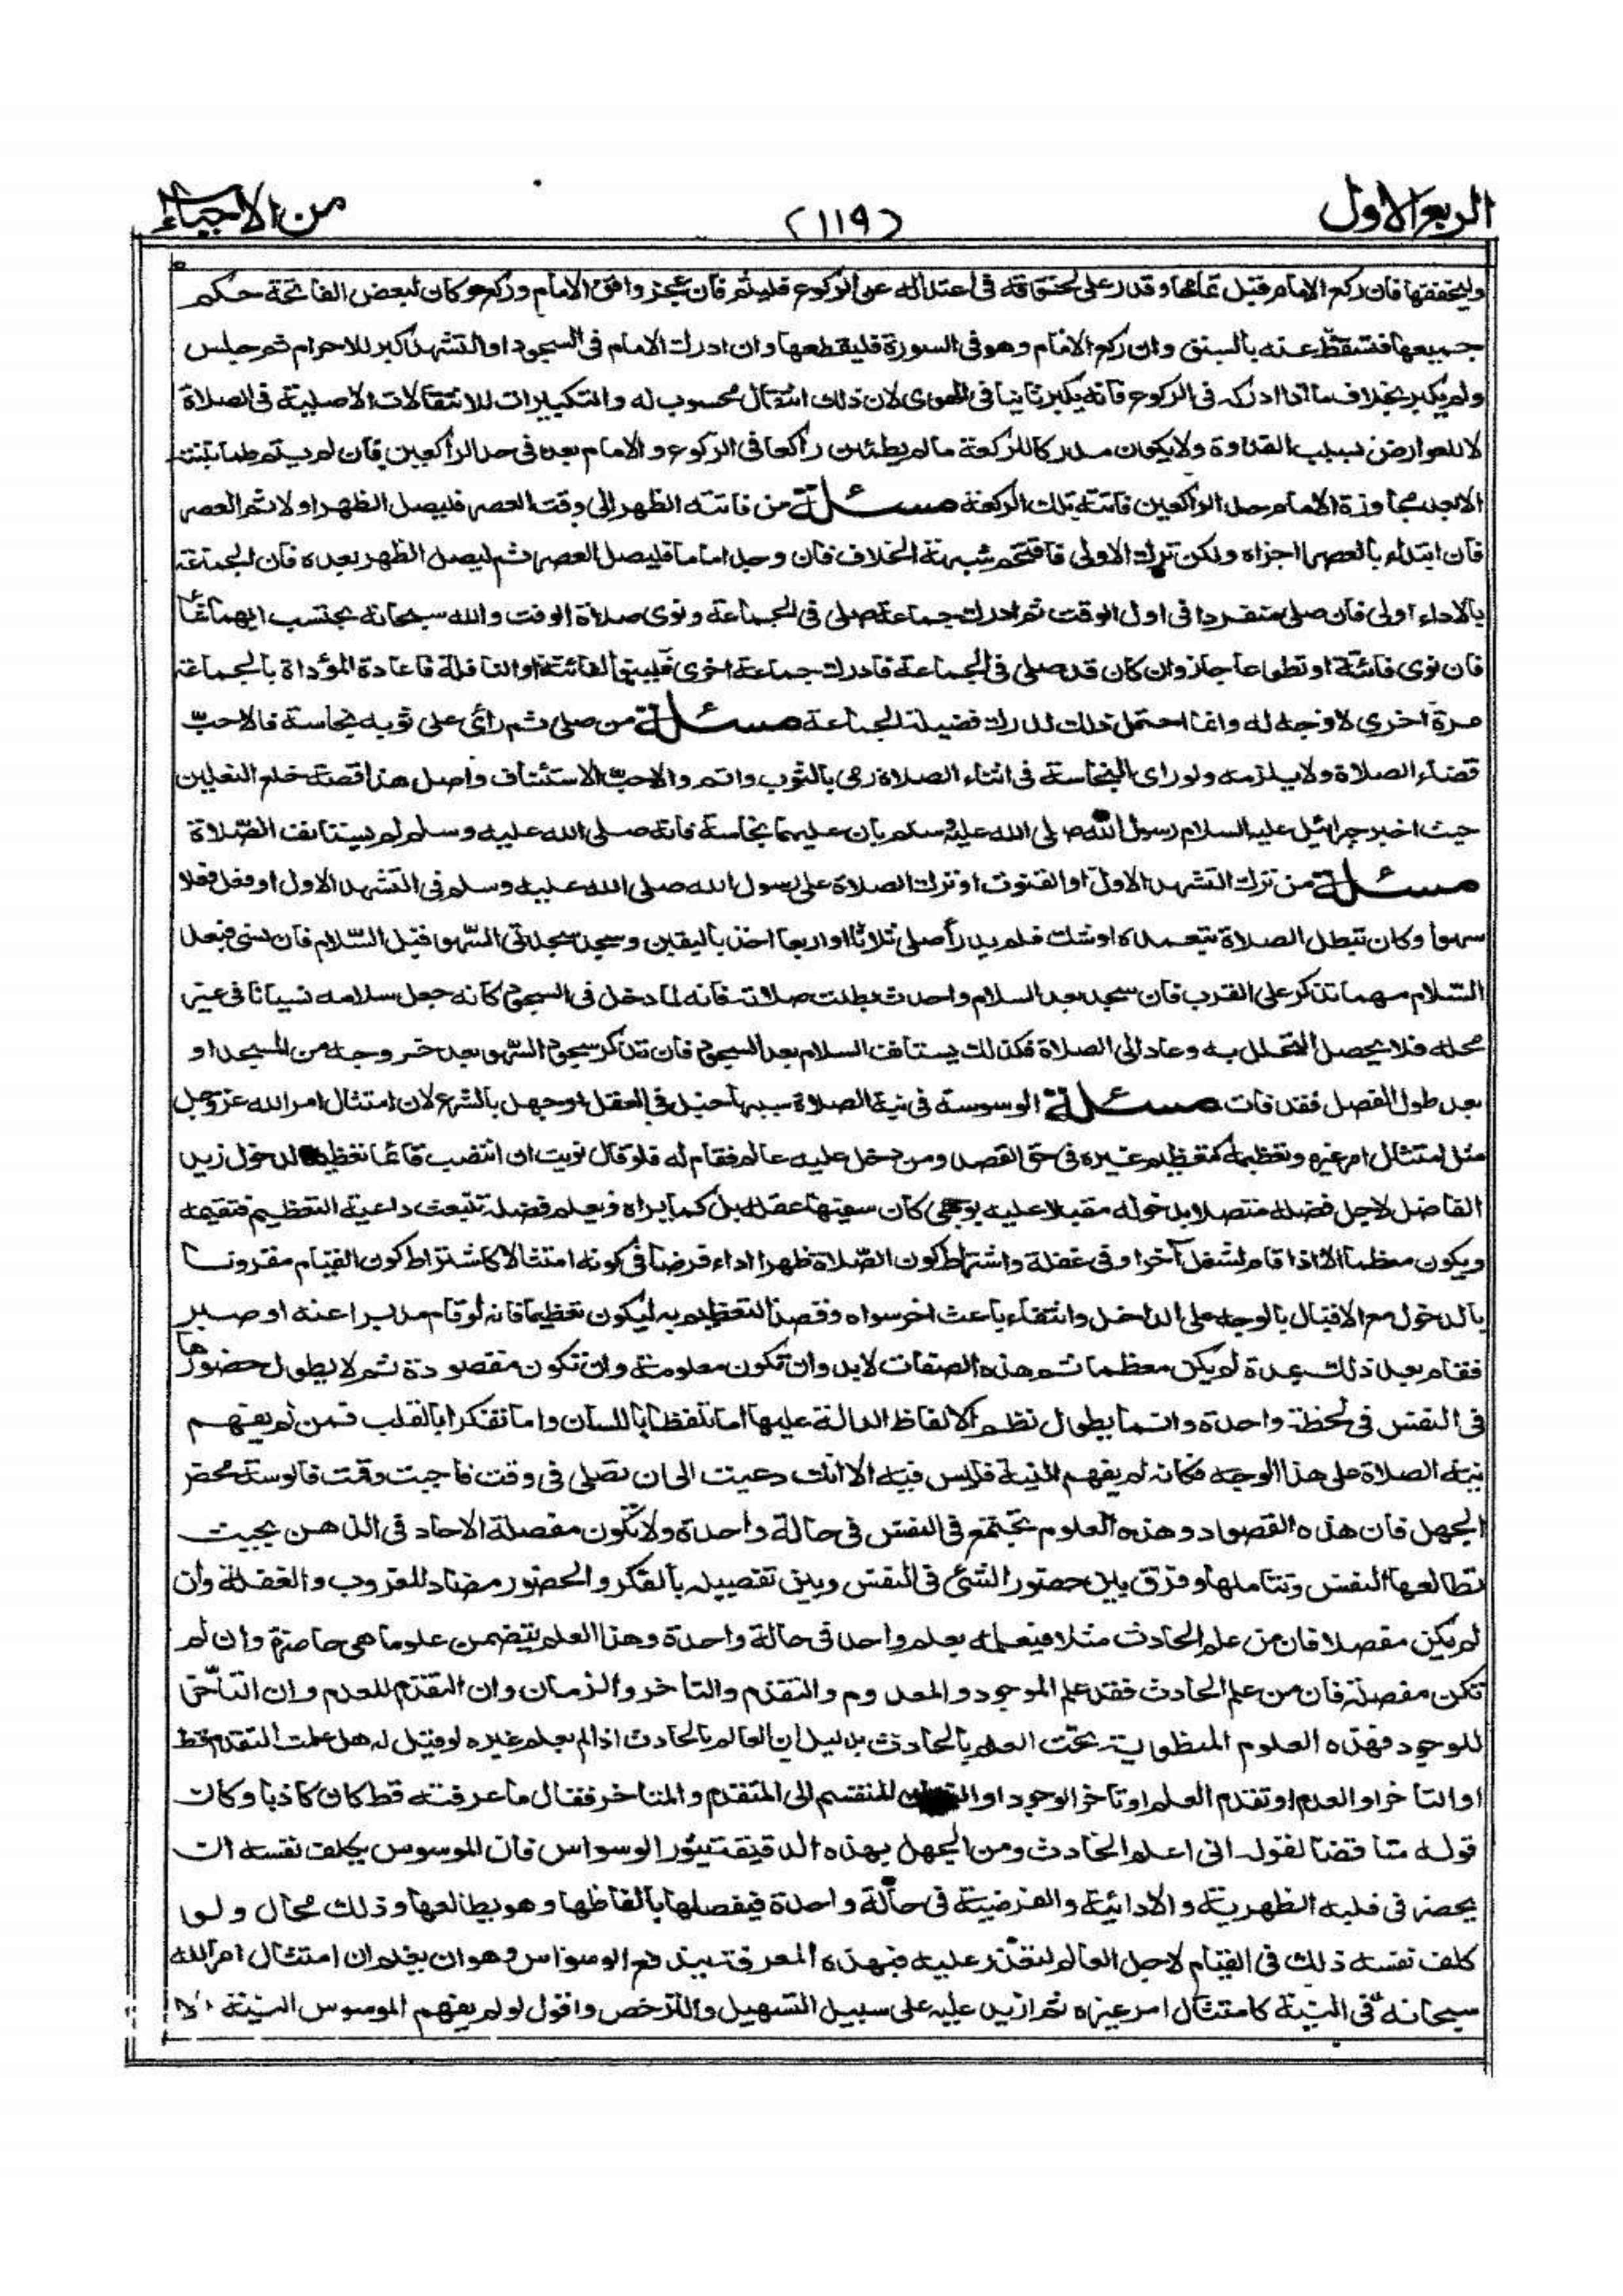 الربع الاول
(١١٩)
من الاحياء
وليخففها فان ركع الامام قبل تمامها وقدر على لحوقه في اعتداله عن الركوع فليتم فان عجز وافق الامام وركع وكان لبعض الفاتحة حكم
جميعها فتسقط عنه بالسبق وان ركع الامام وهو في السورة فليقطعها وان ادرك الامام في السجود او التشهد كبر للاحرام ثم جلس
ولم يكبر بخلاف ما اذا ادركه في الركوع فانه يكبر ثانيا في الهوى لان ذلك انتقال محسوب له والتكبيرات للانتقالات الاصلية في الصلاة
لا للعوارض بسبب القدوة ولا يكون مدركا للركعة ما لم يطمئن راكعا في الركوع والامام بعد في حد الراكعين فان لم يتم طمانينته
الا بعد مجاوزة الامام حد الراكعين فاتته تلك الركعة مسئلة من فاتته الظهر الى وقت العصر فليصل الظهر اولا ثم العصر
فان ابتداء بالعصر اجزاه ولكن ترك الاولى واقتحم شبهة الخلاف فان وجد اماما فليصل العصر ثم ليصل الظهر بعده فان الجماعة
بالاداء اولى فان صلى منفردا في اول الوقت ثم ادرك جماعة صلى في الجماعة ونوى صلاة الوقت والله سبحانه يحتسب ايهما شاء
فان نوى فائتة او تطوعا جاز وان كان قد صلى في الجماعة فادرك جماعة اخرى فلينو الفائتة او النافلة فاعادة المؤداة بالجماعة
مرة اخرى لا وجه له وانما احتمل ذلك لدرك فضيلة الجماعة مسئلة من صلى ثم رأى على ثوبه نجاسة فالاحب
قضاء الصلاة ولا يلزمه ولو راى النجاسة في اثناء الصلاة رمى بالثوب واتم والاحب الاستئناف واصل هذا قصة خلع النعلين
حيث اخبر جبرائيل عليه السلام رسول الله صلى الله عليه وسلم بان عليهما نجاسة فانه صلى الله عليه وسلم لم يستانف الصلاة
مسئلة من ترك التشهد الاول او القنوت او ترك الصلاة على رسول الله صلى الله عليه وسلم في التشهد الاول او فعل فعلا
سهوا وكان تبطل الصلاة بتعمده او شك فلم يدر أصلى ثلاثا او اربعا اخذ باليقين وسجد سجدتي السهو قبل السلام فان نسى فبعد
السلام مهما تذكر على القرب فان سجد بعد السلام واحدث بطلت صلاته فانه لما دخل في السجود كانه جعل سلامه نسيانا في غير
محله فلا يحصل التحلل به وعاد الى الصلاة فكذلك يستانف السلام بعد السجود فان تذكر سجود السهو بعد خروجه من المسجد او
بعد طول الفصل فقد فات مسئلة الوسوسة في نية الصلاة سببها خبل في العقل او جهل بالشرع لان امتثال امر الله عز وجل
مثل امتثال امر غيره وتعظيمه كتعظيم غيره في حق القصد ومن دخل عليه عالم فقام له فلو قال نويت ان انتصب قائما تعظيما لدخول زيد
الفاضل لاجل فضله متصلا بدخوله مقبلا عليه بوجهي كان سفيها عقله بل كما يراه ويعلم فضله تنبعث داعية التعظيم فتقيمه
ويكون معظما الا اذا قام لشغل آخر او في غفلة واشتراط كون الصلاة ظهرا اداء فرضا في كونه امتثالا كاشتراط كون القيام مقرونا
بالدخول مع الاقبال بالوجه على الداخل وانتفاء باعث اخر سواه وقصد التعظيم به ليكون تعظيما فانه لو قام مدبرا عنه او صبر
فقام بعد ذلك بمدة لم يكن معظما ثم هذه الصفات لابد وان تكون معلومة وان تكون مقصودة ثم لا يطول حضورها
في النفس في لحظة واحدة وانما يطول نظم الالفاظ الدالة عليها اما تلفظا باللسان واما تفكرا بالقلب فمن لم يفهم
نية الصلاة على هذا الوجه فكانه لم يفهم النية فليس فيه الا انك دعيت الى ان تصلى في وقت فاجبت وقمت فالوسوسة محض
الجهل فان هذه القصود وهذه العلوم تجتمع في النفس في حالة واحدة ولا تكون مفصلة الاحاد في الذهن بحيث
تطالعها النفس وتتاملها وفرق بين حضور الشئ في النفس وبين تفصيله بالفكر والحضور مضاد للعزوب والغفلة وان
لم يكن مفصلا فان من علم الحادث مثلا فيعلمه بعلم واحد في حالة واحدة وهذا العلم يتضمن علوما هي حاضرة وان لم
تكن مفصلة فان من علم الحادث فقد علم الموجود والمعدوم والتقدم والتاخر والزمان وان التقدم للعدم وان التاخر
للوجود فهذه العلوم المنطوية تحت العلم بالحادث بدليل ان العالم بالحادث اذا لم يعلم غيره لو قيل له هل علمت التقدم قط
او التاخر او العدم او تقدم العدم او تاخر الوجود او الزمان المنقسم الى المتقدم والمتاخر فقال ما عرفته قط كان كاذبا وكان
قوله مناقضا لقوله انى اعلم الحادث ومن الجهل بهذه الدقيقة يثور الوسواس فان الموسوس يكلف نفسه ان
يحضر في قلبه الظهرية والادائية والفرضية في حالة واحدة فيفصلها بالفاظها وهو يطالعها وذلك محال ولو
كلف نفسه ذلك في القيام لاجل العالم لتعذر عليه فبهذه المعرفة يندفع الوسواس وهو ان يعلم ان امتثال امر الله
سبحانه في النية كامتثال امر غيره ثم ازيد عليه على سبيل التسهيل والترخص واقول لو لم يفهم الموسوس النية الا